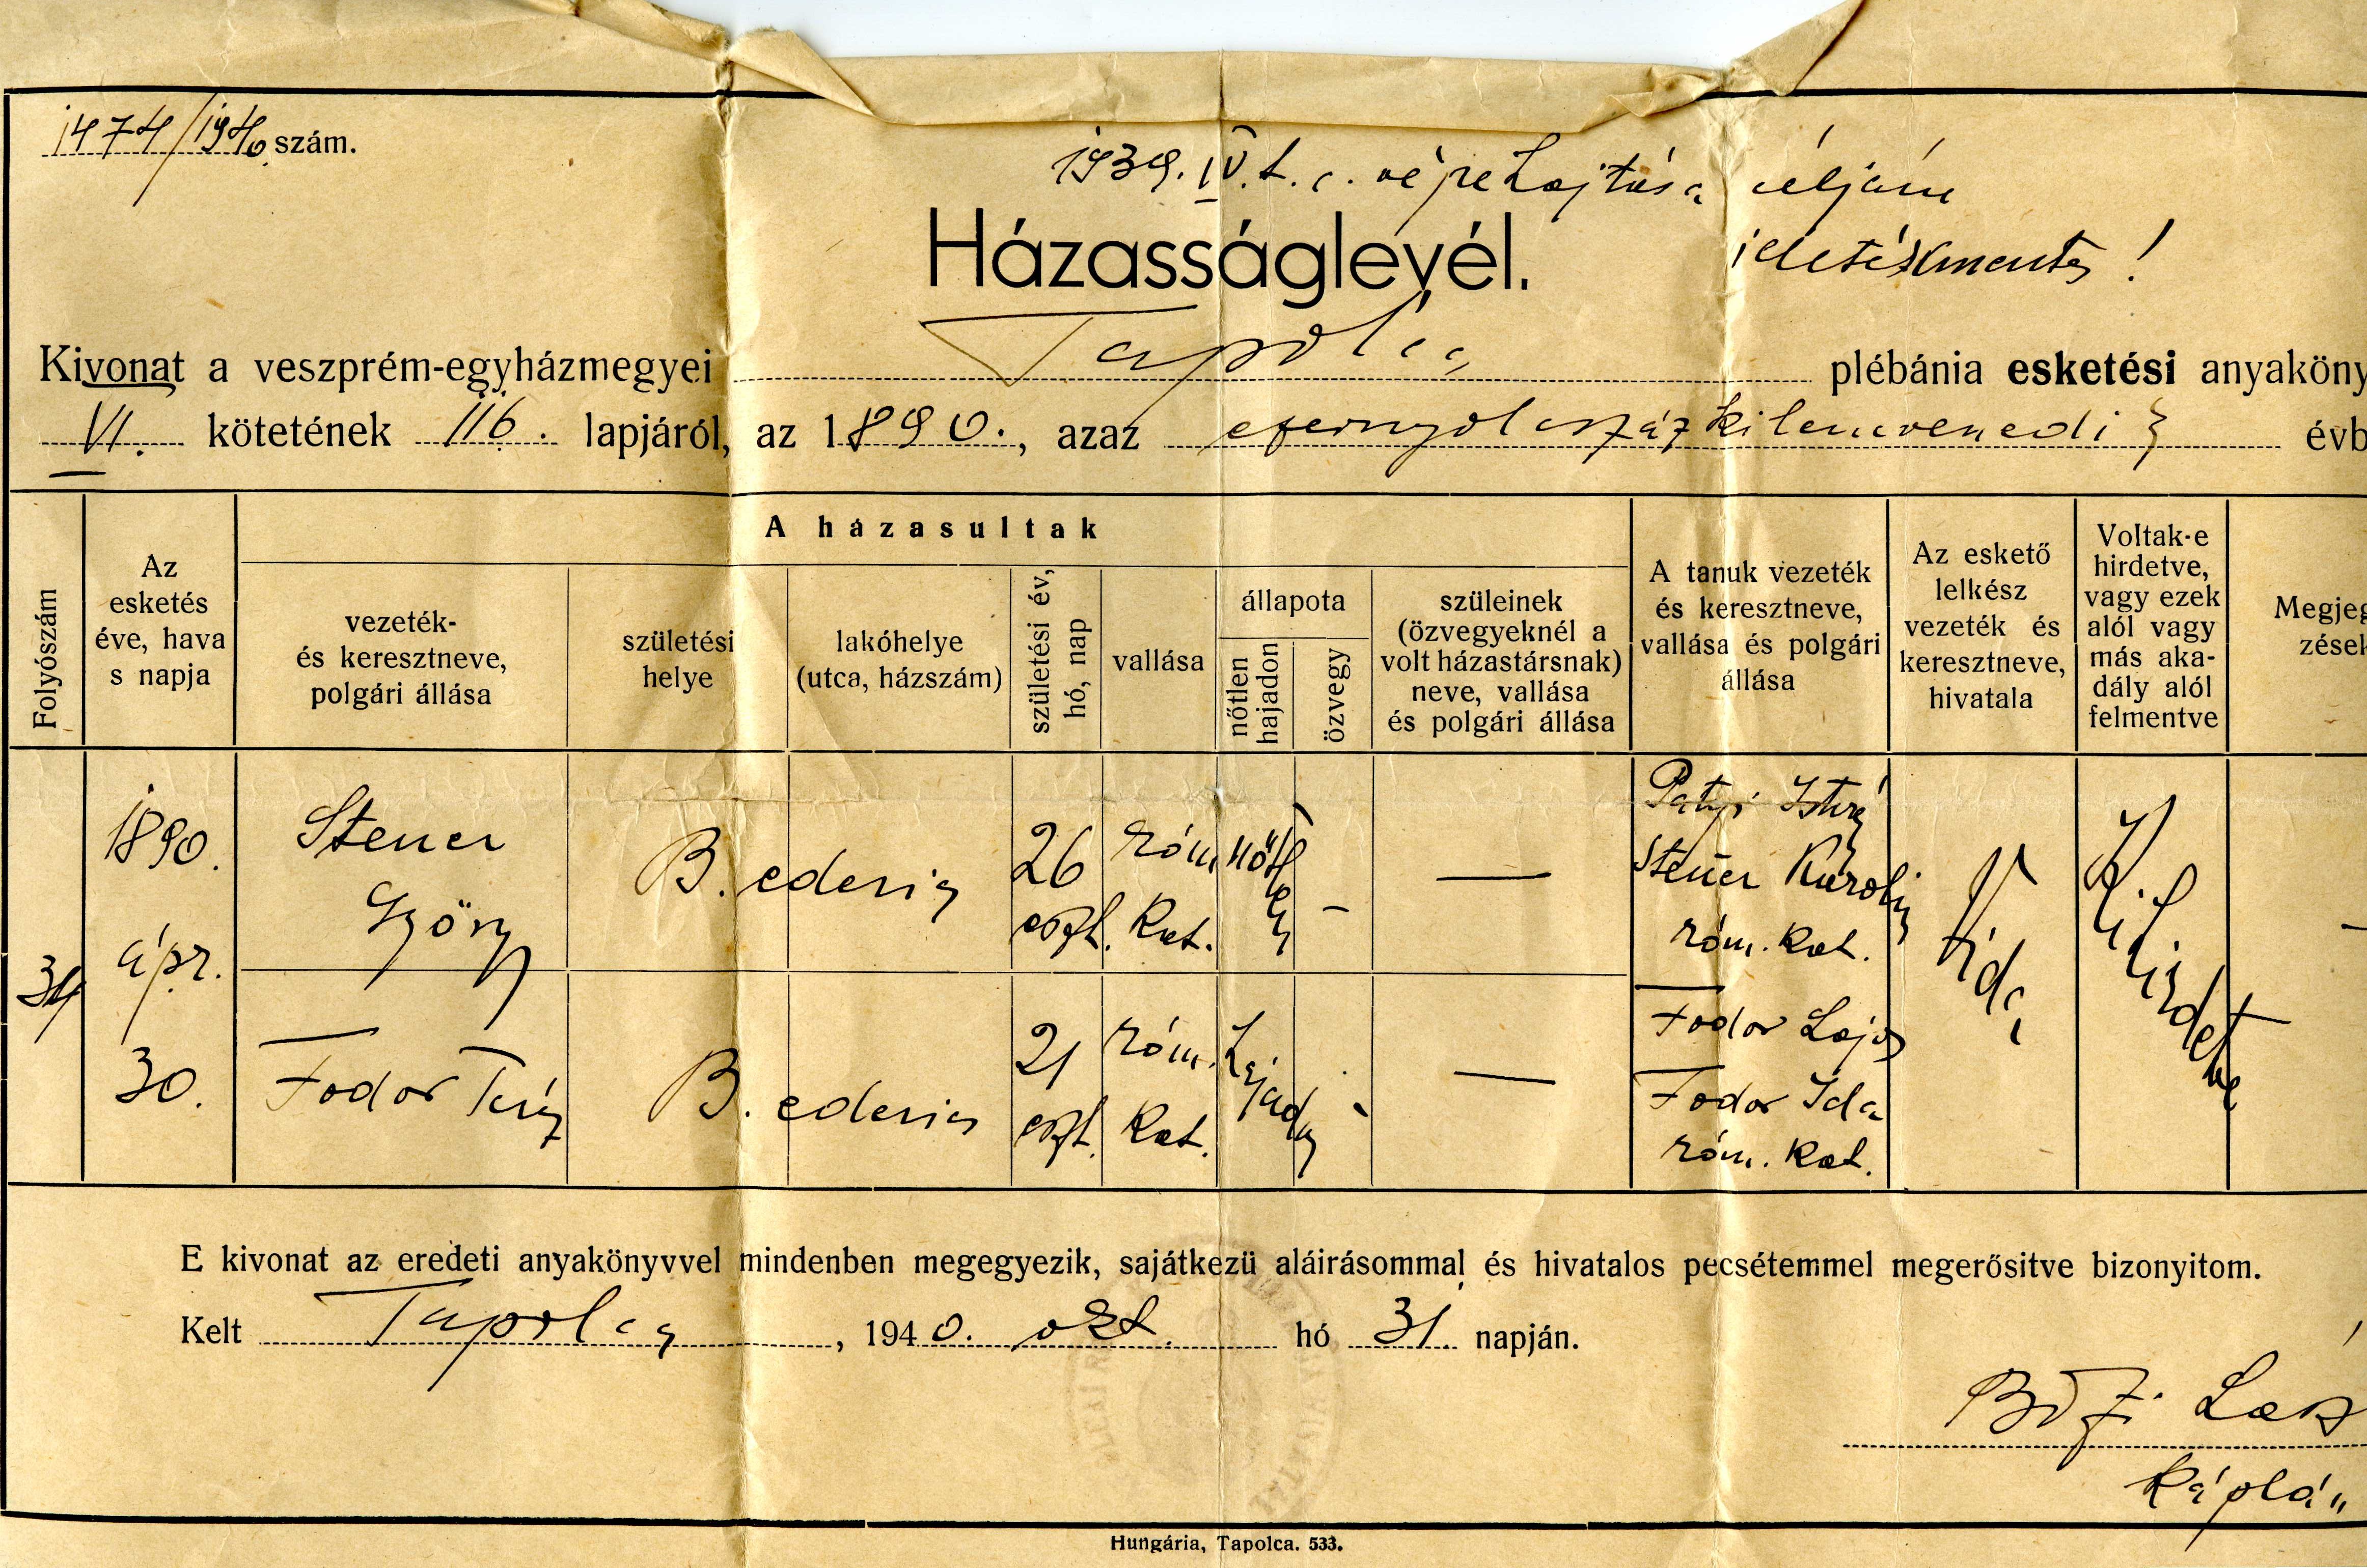 1474/1940 szám.
1939. IV. t. c. végrehajtása céljára
illetékmentes!
Házasságlevél.
Kivonat a veszprém-egyházmegyei Tapolca plébánia esketési anyaköny
VI. kötetének 116. lapjáról, az 1890., azaz ezernyolcszázkilencvenedik évb
Folyószám
Az
esketés
éve, hava
s napja
A házasultak
vezeték-
és keresztneve,
polgári állása
születési
helye
lakóhelye
(utca, házszám)
születési év,
hó, nap
vallása
állapota
nőtlen
hajadon
özvegy
szüleinek
(özvegyeknél a
volt házastársnak)
neve, vallása
és polgári állása
A tanuk vezeték
és keresztneve,
vallása és polgári
állása
Az eskető
lelkész
vezeték és
keresztneve,
hivatala
Voltak-e
hirdetve,
vagy ezek
alól vagy
más aka-
dály alól
felmentve
Megjeg
zések
34
1890.
ápr.
30.
Steuer
György
B. ederics
26
eszt.
róm.
kat.
nőtlen
–
—
Fodor Teréz
B. ederics
21
eszt.
róm.
kat.
hajadon
-
—
Patyi István
Steuer Károly
róm. kat.
Fodor Lajos
Fodor Ida
róm. kat.
Kihirdetve
-
E kivonat az eredeti anyakönyvvel mindenben megegyezik, sajátkezü aláirásommal és hivatalos pecsétemmel megerősitve bizonyitom.
Kelt Tapolca, 1940. okt. hó 31. napján.
Bőzi Lász
káplán
Hungária, Tapolca. 533.